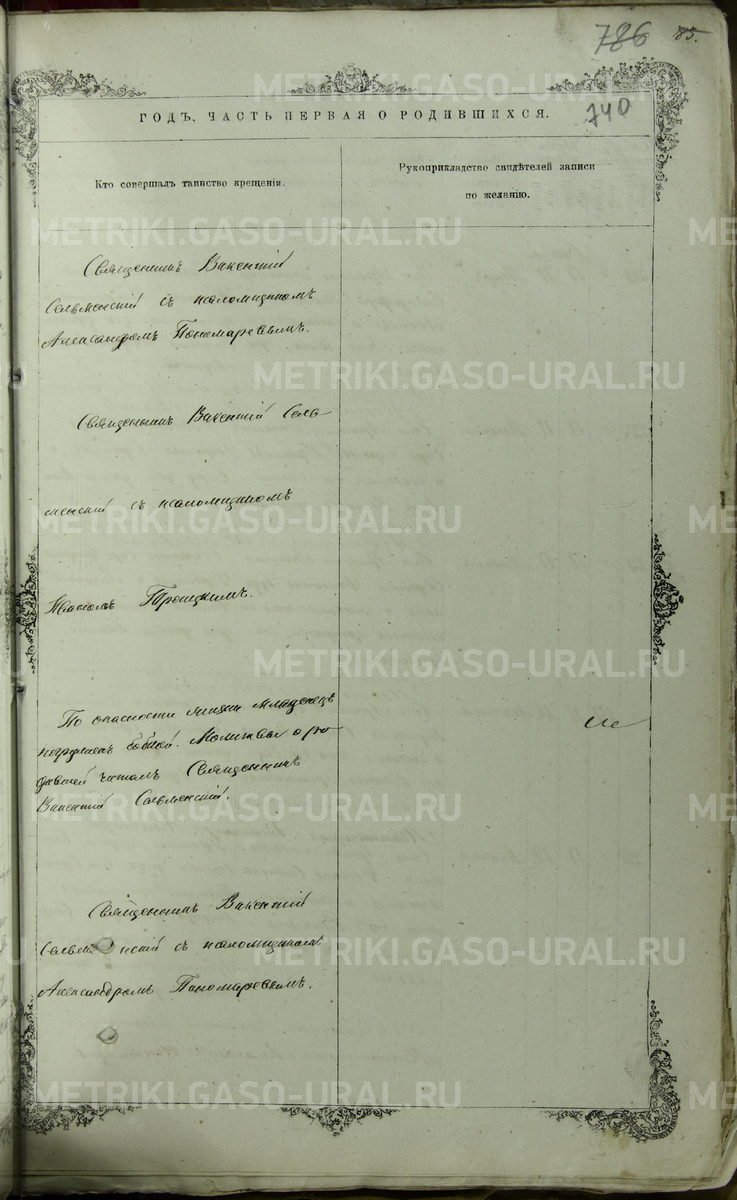 786 85.
740
ГОДЪ, ЧАСТЬ ПЕРВАЯ О РОДИВШИХСЯ.
Кто совершалъ таинство крещенія.
Рукоприкладство свидѣтелей записи
по желанію.
Священникъ Викентій
Сельменскій съ псаломщикомъ
Александромъ Пономаревымъ.
Священникъ Викентій Сель-
менскій съ псаломщикомъ
Иваномъ Троицкимъ.
По опасности жизни младенецъ
погруженъ бабкой. Молитвы о ро-
дившей читалъ Священникъ
Викентій Сельменскій.
Священникъ Викентій
Сельменскій съ псаломщикомъ
Александромъ Пономаревымъ.
METRIKI.GASO-URAL.RU